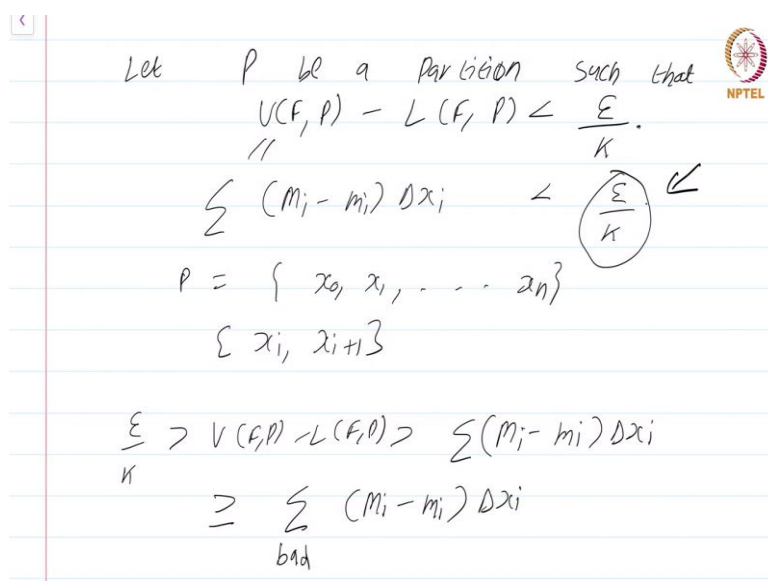 Let P be a partition such that
NPTEL
U(F, P) - L(F, P) < ε/K.
||
∑ (Mi - mi) Δxi < ε/K
P = { x0, x1, . . . xn}
{ xi, xi+1}
ε/K > U(F,P) - L(F,P) > ∑(Mi - mi) Δxi
≥ ∑ (Mi - mi) Δxi
bad